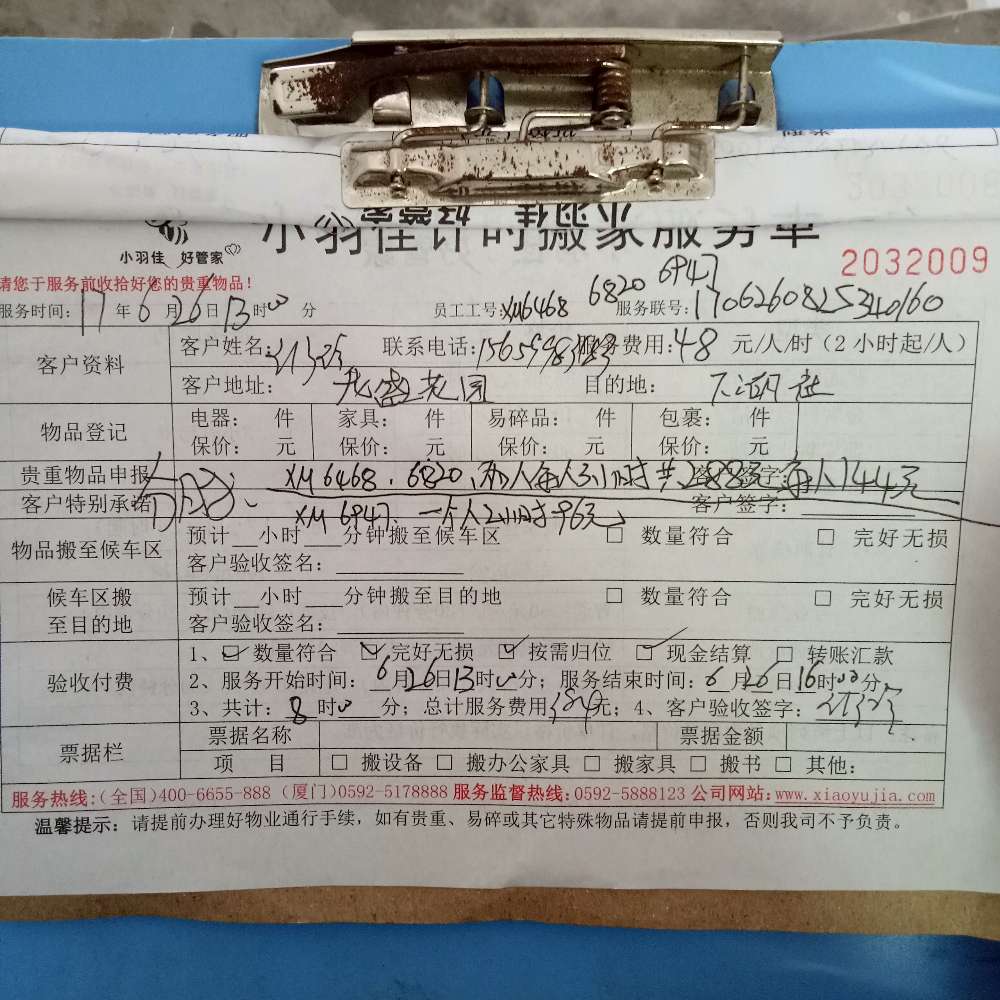 小羽佳计时搬家服务单
小羽佳 好管家
2032009
请您于服务前收拾好您的贵重物品!
6820 6947
服务时间: 17 年 6 月 26 日 13 时 00 分 员工工号: XM6468 服务联号: 1706260825340160
客户资料 客户姓名: 联系电话: 服务费用: 48 元/人/时(2小时起/人)
客户地址: 目的地:
物品登记 电器: 件 家具: 件 易碎品: 件 包裹: 件
保价: 元 保价: 元 保价: 元 保价: 元
贵重物品申报 XM6468、6820、两人每人3小时共288元 每人144元
客户特别承诺 XM6947、一个人2小时96元 客户签字:
物品搬至候车区 预计__小时___分钟搬至候车区 □ 数量符合 □ 完好无损
客户验收签名:
候车区搬至目的地 预计__小时___分钟搬至目的地 □ 数量符合 □ 完好无损
客户验收签名:
验收付费 1、☑ 数量符合 ☑ 完好无损 ☑ 按需归位 ☑ 现金结算 □ 转账汇款
2、服务开始时间: 6 月 26 日 13 时 00 分; 服务结束时间: 6 月 26 日 16 时 00 分
3、共计: 8 时 0 分; 总计服务费用 384 元; 4、客户验收签字:
票据栏 票据名称 票据金额
项 目 □ 搬设备 □ 搬办公家具 □ 搬家具 □ 搬书 □ 其他:
服务热线:(全国)400-6655-888 (厦门)0592-5178888 服务监督热线:0592-5888123 公司网站:www.xiaoyujia.com
温馨提示: 请提前办理好物业通行手续, 如有贵重、易碎或其它特殊物品请提前申报, 否则我司不予负责。